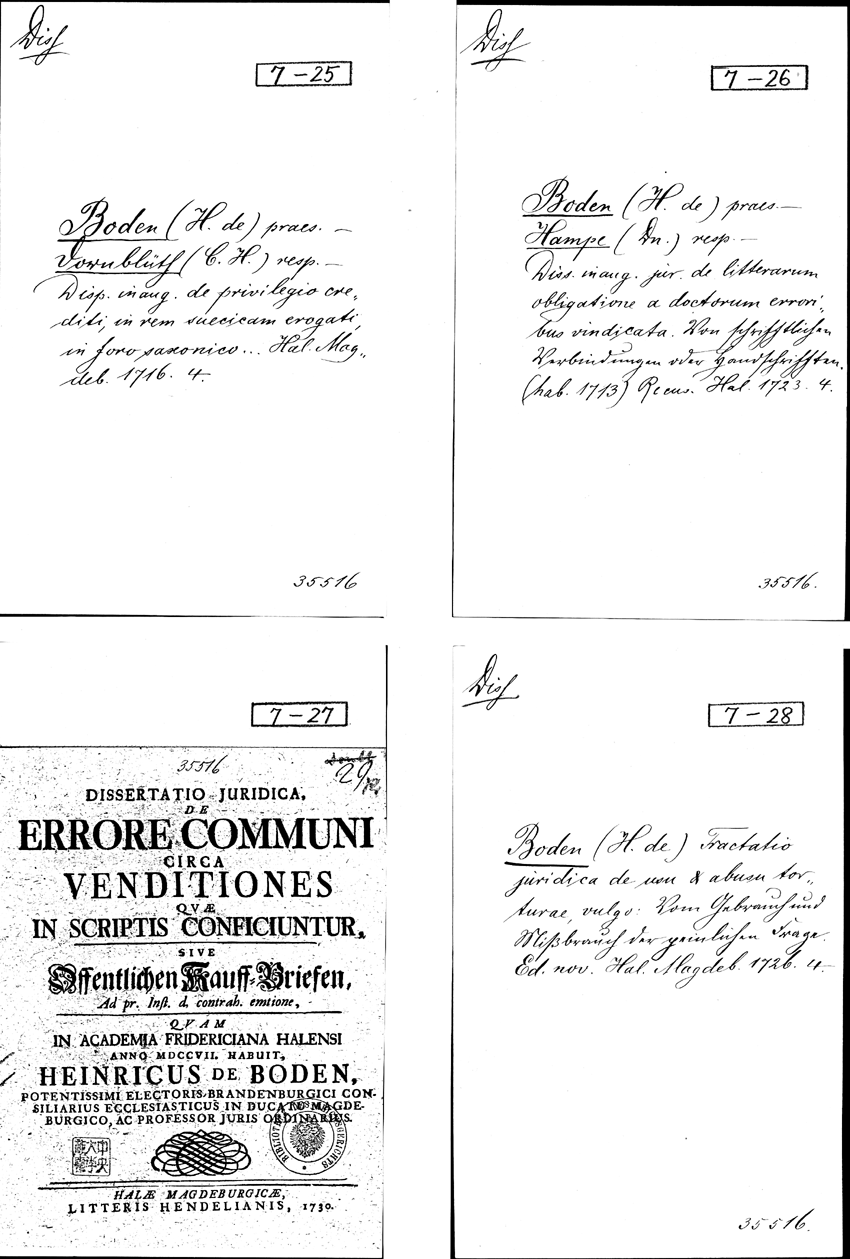 Diss
7-25
Boden (H. de) praes. —
Dornblüth (C. H.) resp. —
Disp. inaug. de privilegio cre„
diti, in rem suecicam erogati,
in foro saxonico... Hal. Mag„
deb. 1716. 4.
35516
Diss
7-26
Boden (H. de) praes. —
Hampe (Dn.) resp. —
Diss. inaug. jur. de litterarum
obligatione a doctorum errori„
bus vindicata. Von schrifftlichen
Verbindungen oder Handschrifften.
(hab. 1713) Recus. Hal. 1723. 4.
35516.
7-27
35516
29
DISSERTATIO JURIDICA,
DE
ERRORE COMMUNI
CIRCA
VENDITIONES
QVÆ
IN SCRIPTIS CONFICIUNTUR,
SIVE
Öffentlichen Kauff-Briefen,
Ad pr. Inst. d. contrah. emtione,
QVAM
IN ACADEMIA FRIDERICIANA HALENSI
ANNO MDCCVII. HABUIT,
HEINRICUS DE BODEN,
POTENTISSIMI ELECTORIS-BRANDENBURGICI CON-
SILIARIUS ECCLESIASTICUS IN DUCATU MAGDE-
BURGICO, AC PROFESSOR JURIS ORDINARIUS.
HALÆ MAGDEBURGICÆ,
LITTERIS HENDELIANIS, 1739.
Diss
7-28
Boden (H. de) Tractatio
juridica de usu & abusu tor„
turae, vulgo: Vom Gebrauch und
Mißbrauch der peinlichen Frage.
Ed. nov. Hal. Magdeb. 1726. 4.
35516.